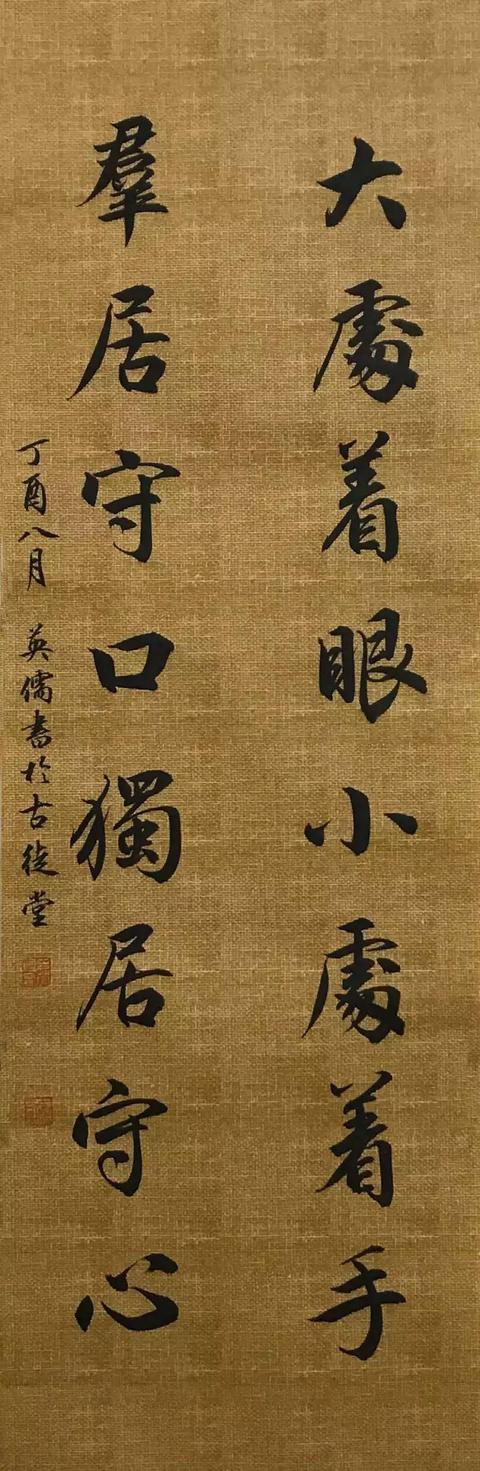 大處着眼小處着手
羣居守口獨居守心
丁酉八月 英儒書於古徒堂